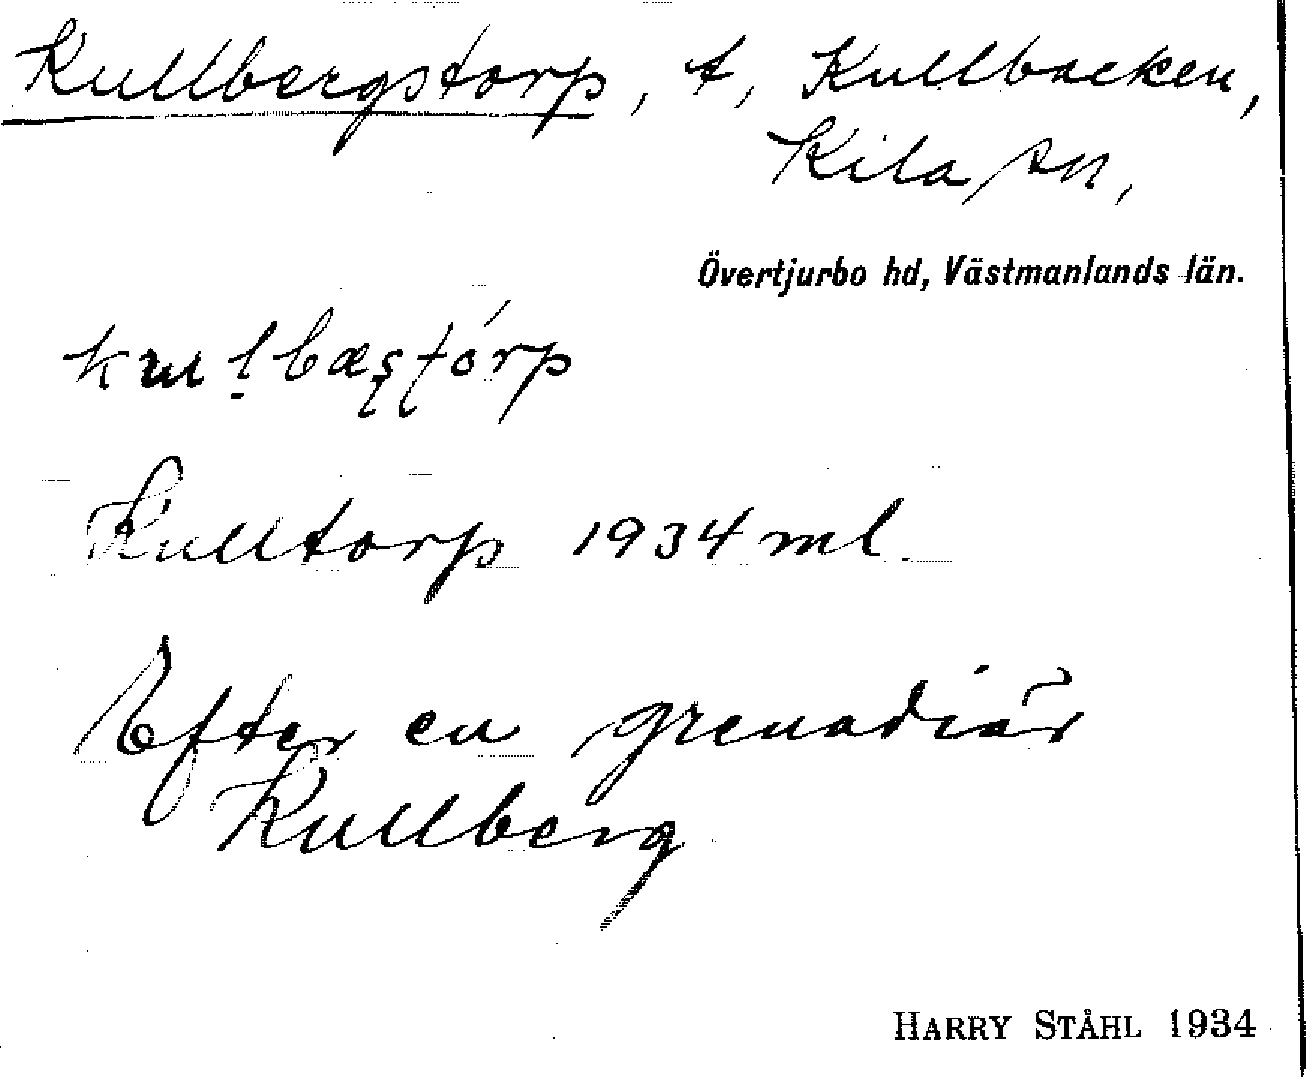 Kullbergstorp, t, Kullbacken,
Kila sn,
Övertjurbo hd, Västmanlands län.
Kulltorp 1934 ml.
Efter en grenadiär
Kullberg
HARRY STÅHL 1934